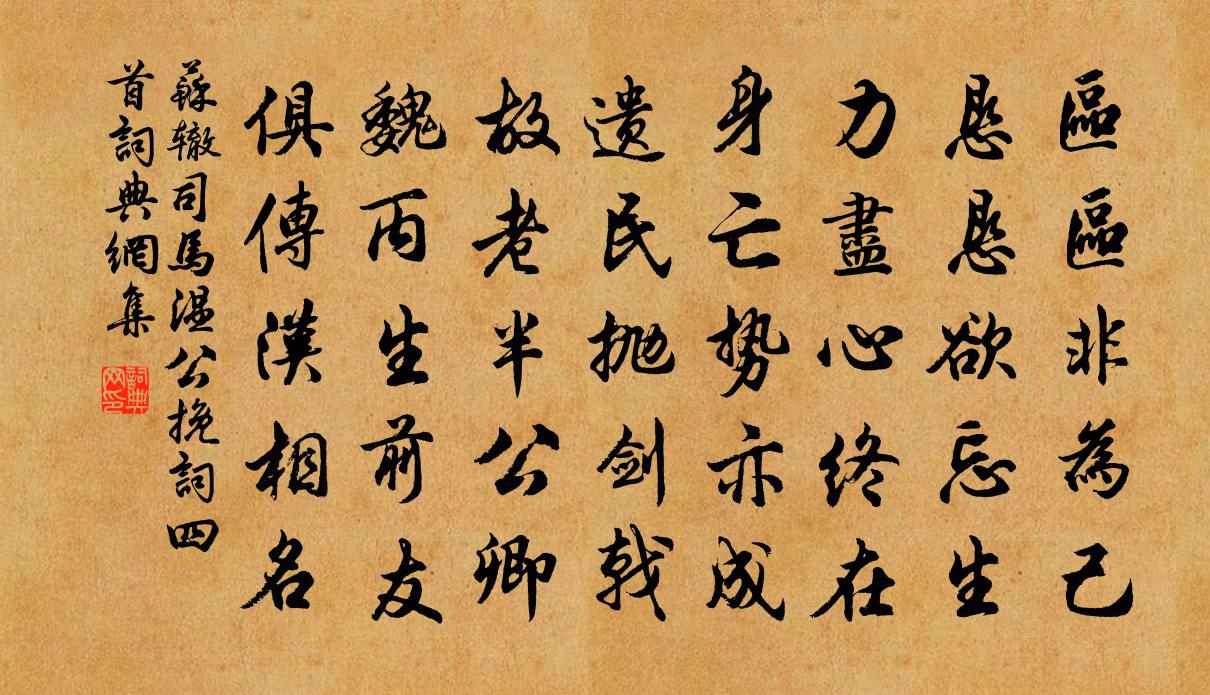 區區非為己
恳恳欲忘生
力盡心終在
身亡势亦成
遗民抛剑戟
故老半公卿
魏丙生前友
俱傳漢相名
蘇辙司馬温公挽詞四
首詞典網集
詞典
网印